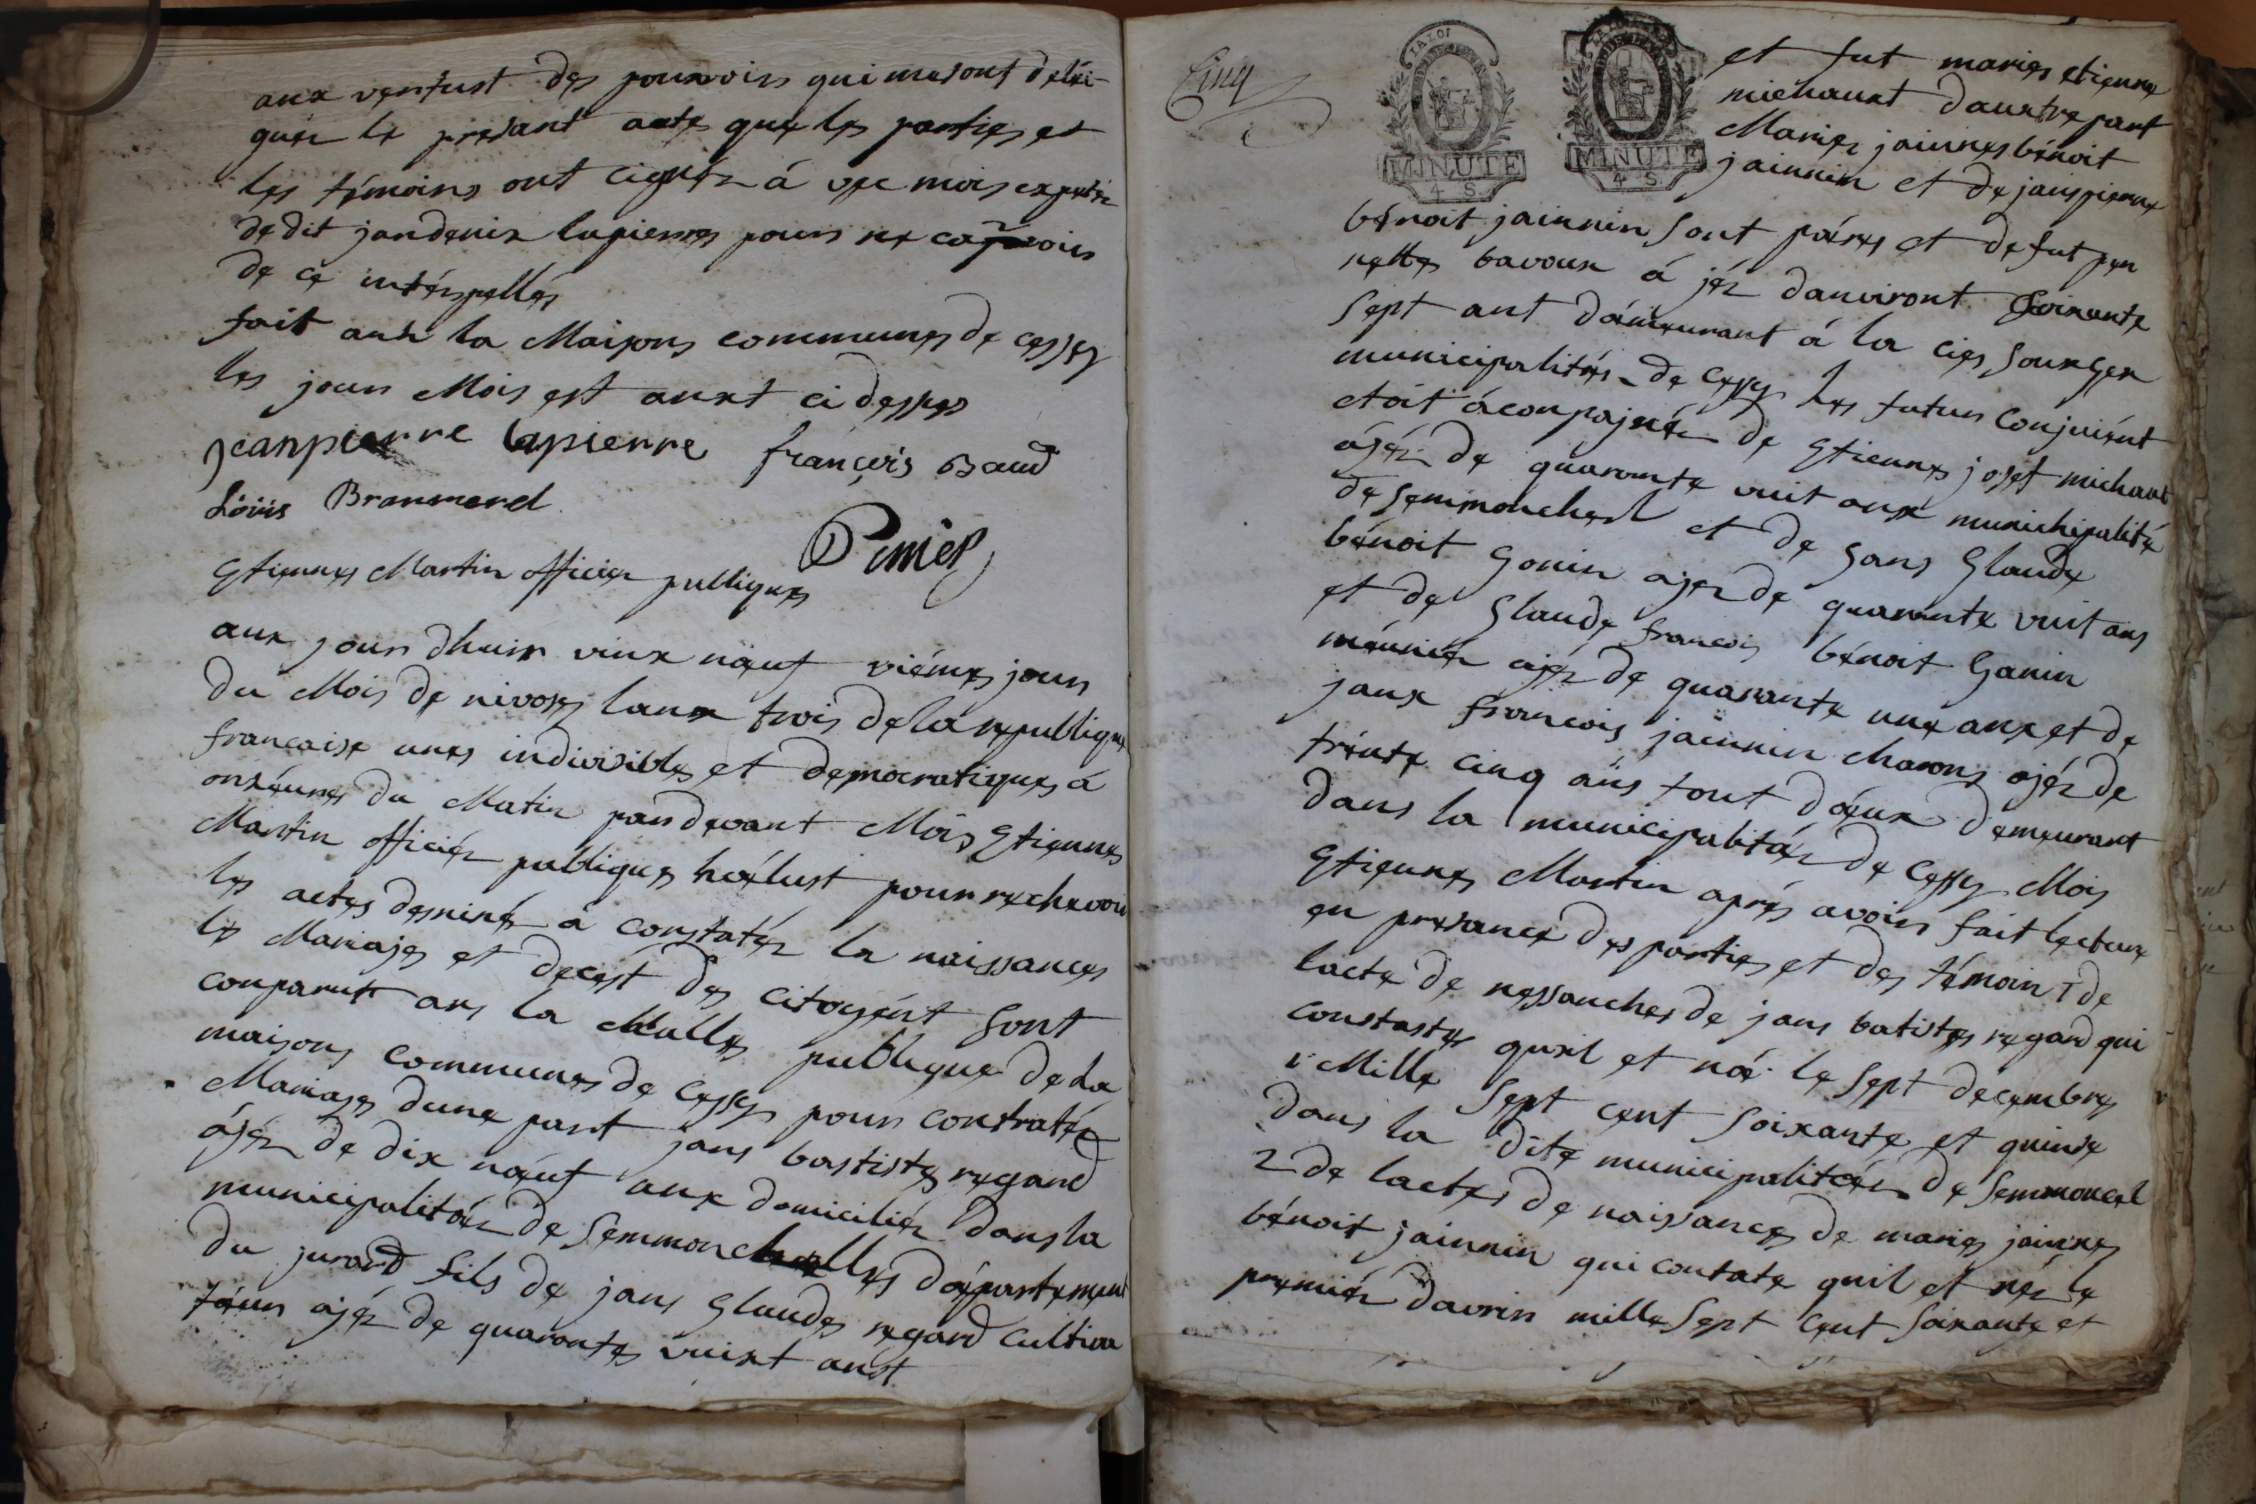 aux vertust des pouvoirs qui me sont délé-
guér le presant acte que les parties et
les témoins ont cignér á vec mois
de dit jandenis lapierres pours ne
de ce intérpellés
fait anh la Maisons communes de cessy
les jour Mois est anxt ci desses
Jeanpierre lapierre françois Baud
Louis Branmerel
Penier
Etiennes Martin officier publiques
aux jour dhuir vint nauf viémes jour
du Mois de nivoses lanx trois de la republique
francaise unes indivisibles et democratiques á
onxéures du Matin pardevant Mois Etiennes
Martin officiér publiques hoélust pour rechevoir
les actes desniné á constatér la naissances
les Mariajes et decest des citoyént sont
conparutt ans la salles publique de la
maisons communes de cessy pour contratér
Mariages dune part jans bastistes regard
ájér de dix nauf anx domiciliér dans la
municipalitér de semmonchelles département
du jurard fils de jans glaudes regard cultiva
téur ajér de quarantes vuixt anst
Cinq
LA LOI
MINUTE
4 S.
MINUTE
4 S.
et fut maries etienne
michauxt dauxtre part
Maries jainnes bénoit
jainnin et de jans pierre
bénoit jainnin sont péres et defut per
nettes bavoux á jér danviront soixante
sept ant dámeurant á la cies sourger
municipalités de cessy les futur conjoiént
etoit áconpajnér de Etiennes joset michaut
ájér de quarante vuit anx munichipalité
de semmonchel et de jans glaude
bénoit gonin ajér de quarante vuit ans
et de glaude francois bénoit Ganin
meúniér ajér de quarante unx anx et de
janx francois jainnin charons ajér de
trénte cinq ans tout déux demeurant
dans la municipalitér de cessy Mois
Etiennes Martin aprés avoir fait lecture
en presance des parties et des témoin 1 de
lacte de nessanches de jans batistes regard qui
constaster quxil et né le sept décembres
1 Mille sept cent soixante et quinse
dans la dite municipalitér de semmoncel
2 de lactes de naissances de maries jainnes
bénoit jainnin qui contate quil et nér le
premiér davrin mille sept cent soixante et